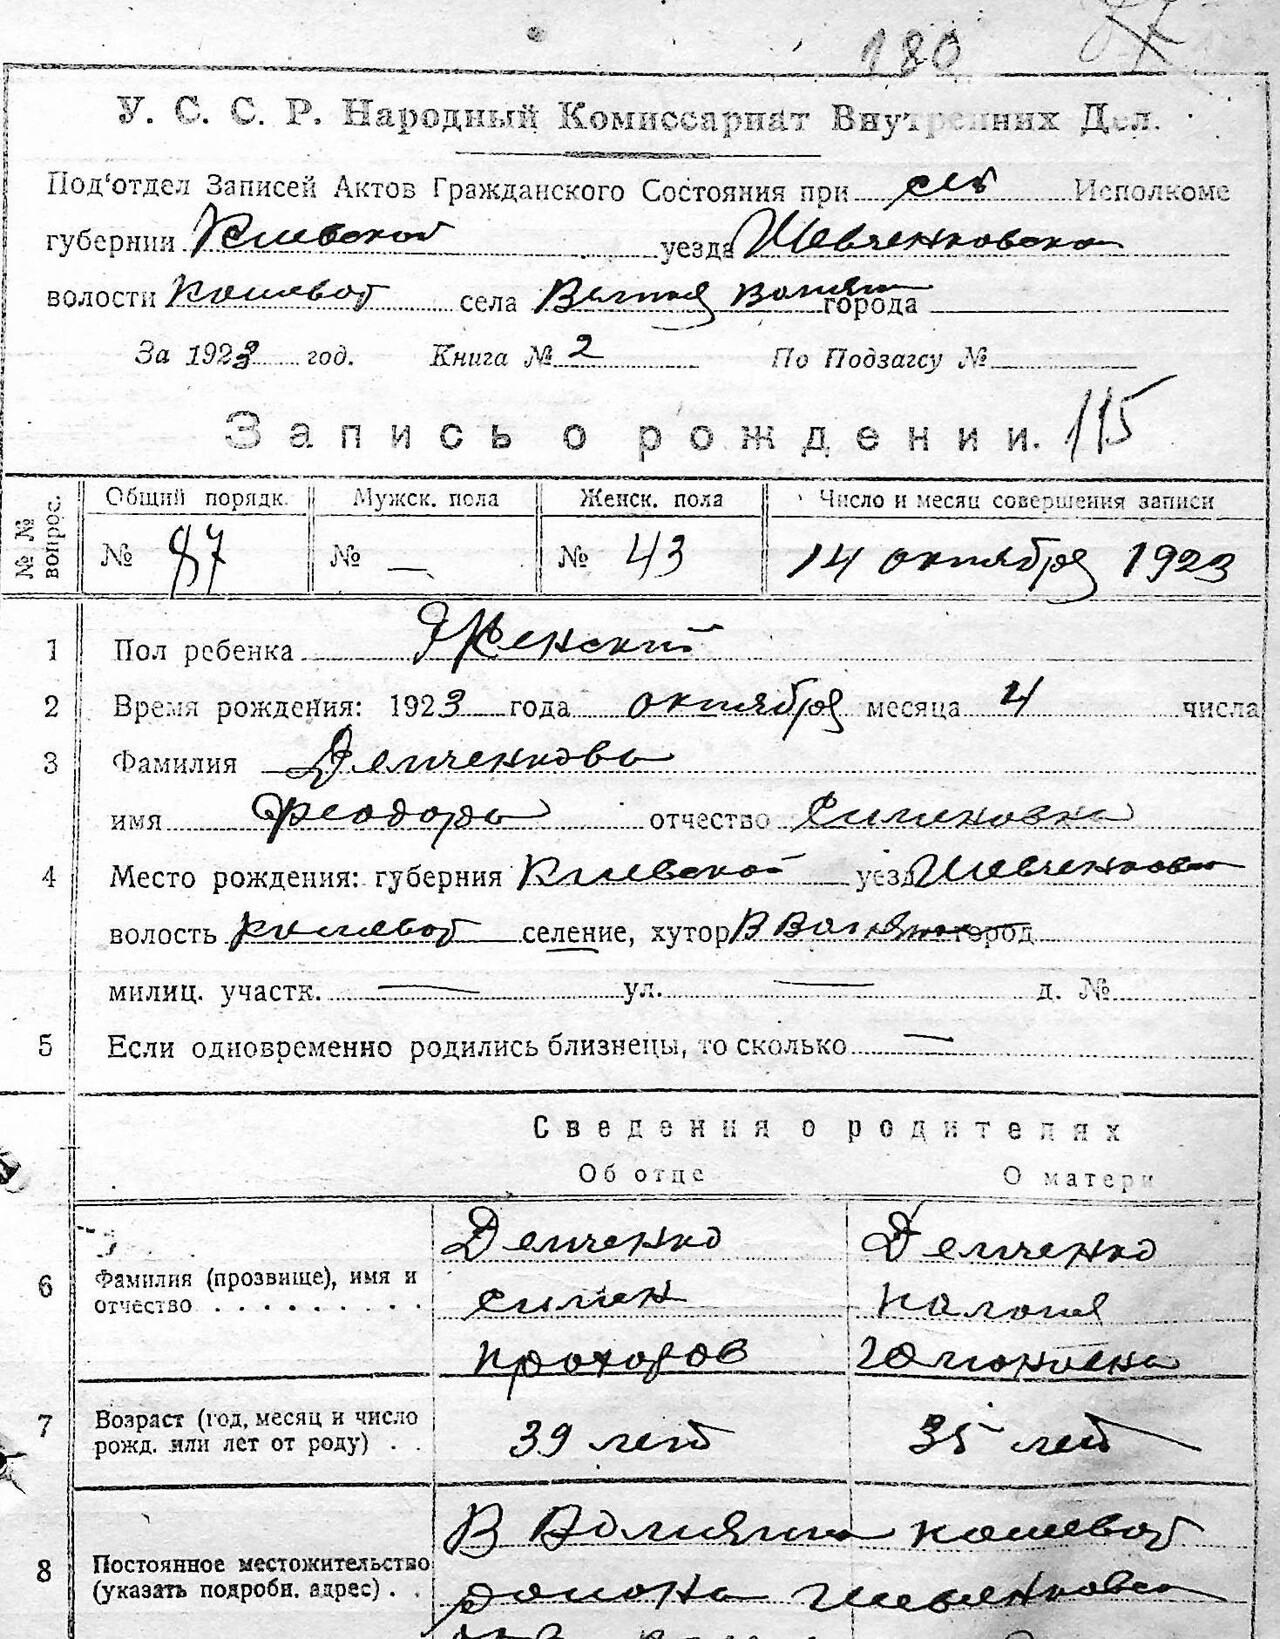 180
У. С. С. Р. Народный Комиссариат Внутренних Дел.
Под‘отдел Записей Актов Гражданского Состояния при Исполкоме
губернии Киевской уезда Шевченковско
волости села города
За 1923 год. Книга № 2 По Подзагсу №
Запись о рождении. 115
№ № вопрос. Общий порядк. Мужск. пола Женск. пола Число и месяц совершения записи
№ 87 № — № 43 14 октября 1923
1 Пол ребенка Женский
2 Время рождения: 1923 года октября месяца 4 числа
3 Фамилия Демченкова
имя Феодора отчество
4 Место рождения: губерния Киевской уезд Шевченково
волость селение, хутор В город
милиц. участк. — ул. — д. №
5 Если одновременно родились близнецы, то сколько —
Сведения о родителях
Об отце О матери
6 Фамилия (прозвище), имя и отчество Демченко Демченко
Прохоров
7 Возраст (год, месяц и число рожд. или лет от роду) 39 лет 35 лет
8 Постоянное местожительство (указать подробн. адрес) В